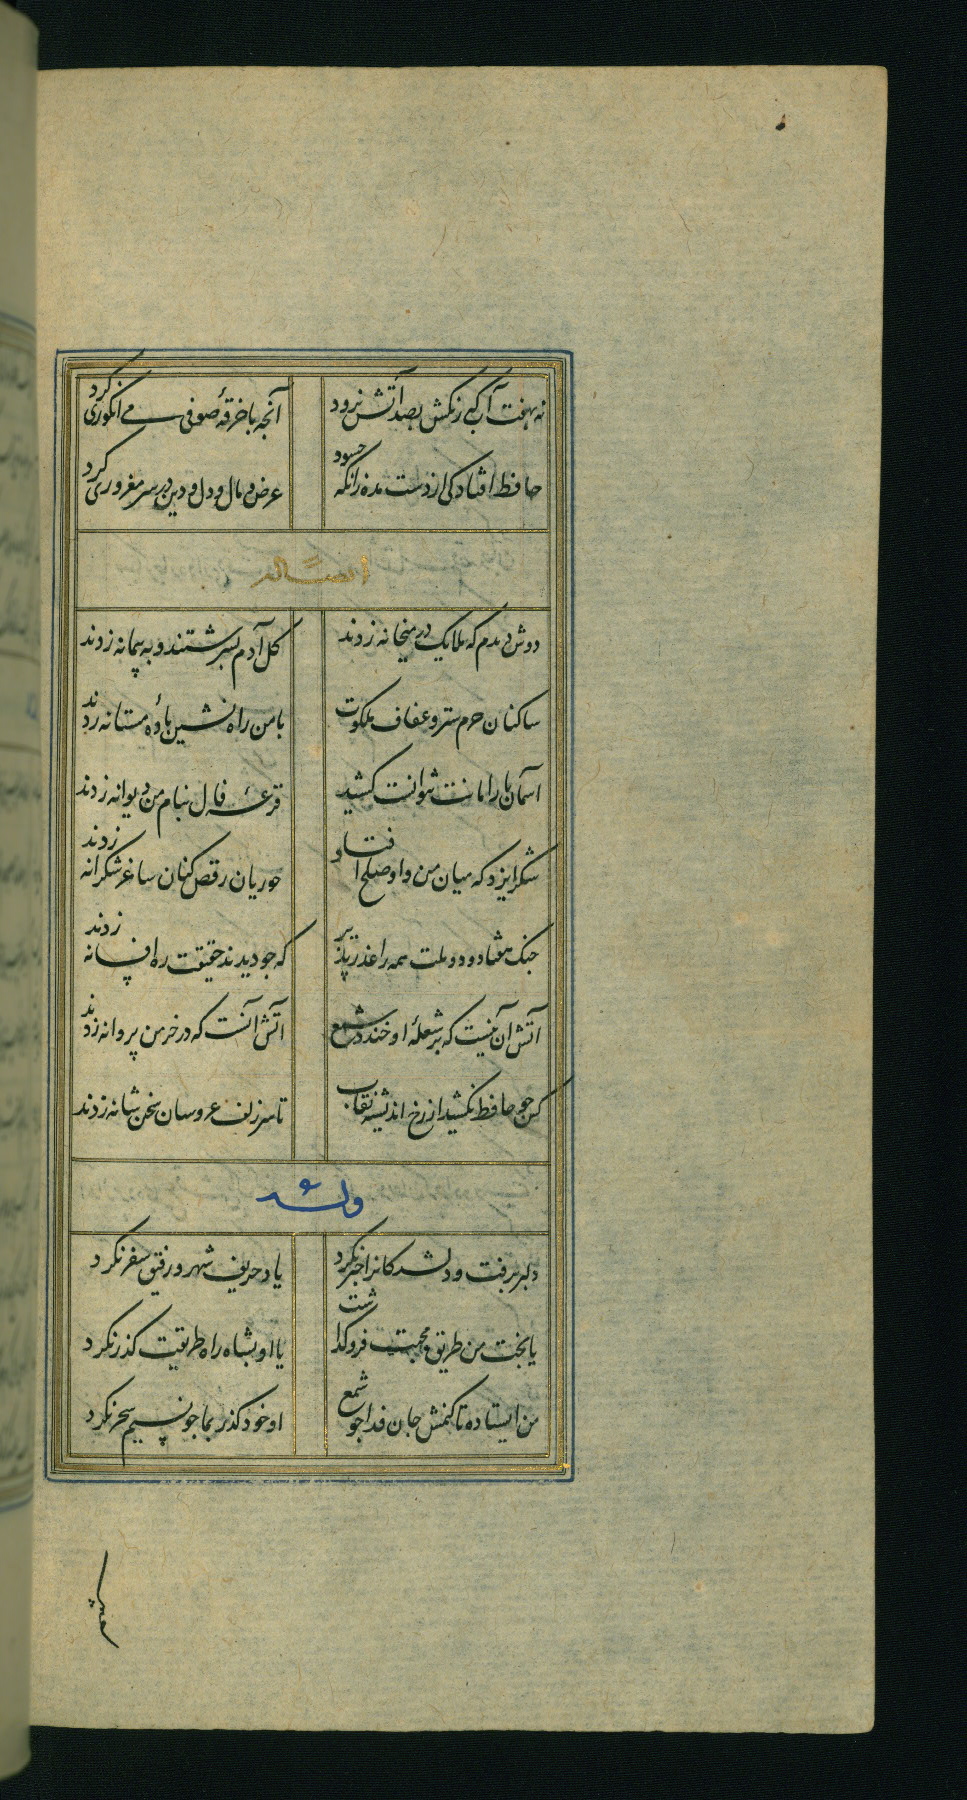 نه بهفت آب که رنکش بصد آتش نرود
آنچه با خرقهٔ صوفی می انکوری کرد
حافظ افتادکی از دست مده زانکه حسود
عرض و مال و دل و دین در سر مغروری کرد
دوش دیدم که ملایک در میخانه زدند
کل آدم بسرشتند و به پیمانه زدند
ساکنان حرم ستر و عفاف ملکوت
با من راه نشین بادهٔ مستانه زدند
آسمان بار امانت نتوانست کشید
قرعهٔ فال بنام من دیوانه زدند
شکر ایزد که میان من و او صلح افتاد
حوریان رقص کنان ساغر شکرانه زدند
جنک هفتاد و دو ملت همه را عذر پذیر
که جو دیدند حقیقت ره افسانه زدند
آتش آن نیست که بر شعلهٔ او خندد شمع
آتش آنست که در خرمن پروانه زدند
کس جو حافظ نکشید از رخ اندیشه نقاب
تا سر زلف عروسان سخن شانه زدند
وله
دلبر برفت و دلشدکانرا خبر نکرد
یاد حریف شهر و رفیق سفر نکرد
یا بخت من طریق محبت فروکذاشت
یا او بشاه راه طریقت کذر نکرد
من ایستاده تا کنمش جان فدا جو شمع
او خود کذر بما جو نسیم سحر نکرد